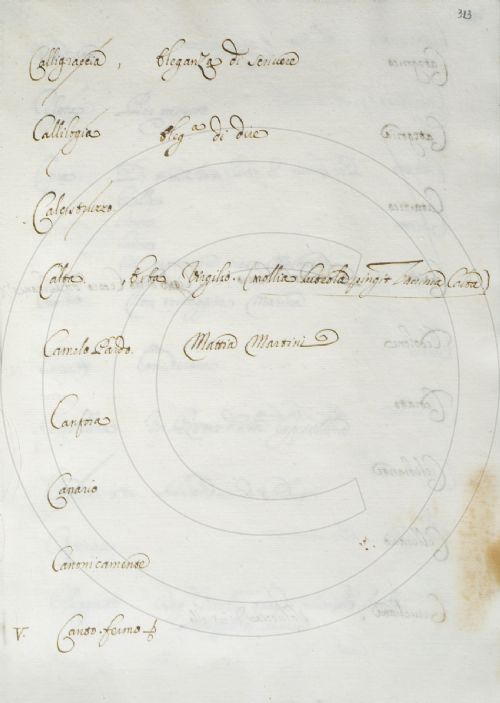 313
Calligraffia, Eleganza di scrivere
Callilogia Eleg.a di dire
Calta, Erba Virgilio. (mollia luteola pingit vaccinia Calta)
Camelo Pardo. Mattia Martini
Canfora
Canario
Canonicamente
V. Canto fermo